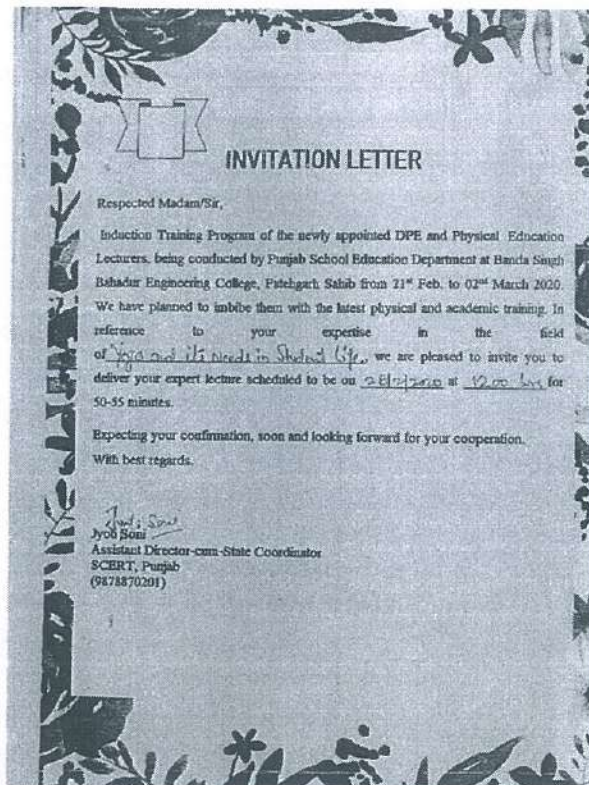 INVITATION LETTER
Respected Madam/Sir,
Induction Training Program of the newly appointed DPE and Physical Education
Lecturers, being conducted by Punjab School Education Department at Banda Singh
Bahadur Engineering College, Fatehgarh Sahib from 21st Feb. to 02nd March 2020.
We have planned to imbibe them with the latest physical and academic training. In
reference to your expertise in the field
of Yoga and its needs in Student Life, we are pleased to invite you to
deliver your expert lecture scheduled to be on 28/2/2020 at 1200 hrs for
50-55 minutes.
Expecting your confirmation, soon and looking forward for your cooperation.
With best regards.
Jyoti Soni
Jyoti Soni
Assistant Director-cum-State Coordinator
SCERT, Punjab
(9878870201)